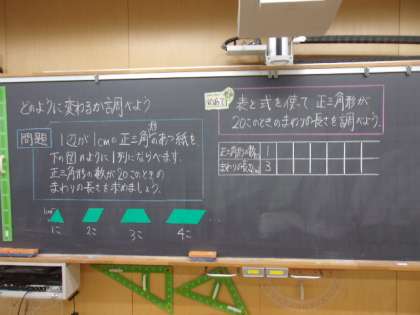 どのように変わるか調べよう
問題
1辺が1cmの正三角形のあつ紙を、
下の図のように1列にならべます。
正三角形の数が20このときの
まわりの長さを求めましょう。
1cm
1こ 2こ 3こ 4こ
めあて
表と式を使って、正三角形が
20このときのまわりの長さを調べよう。
正三角形の数 1
まわりの長さ 3